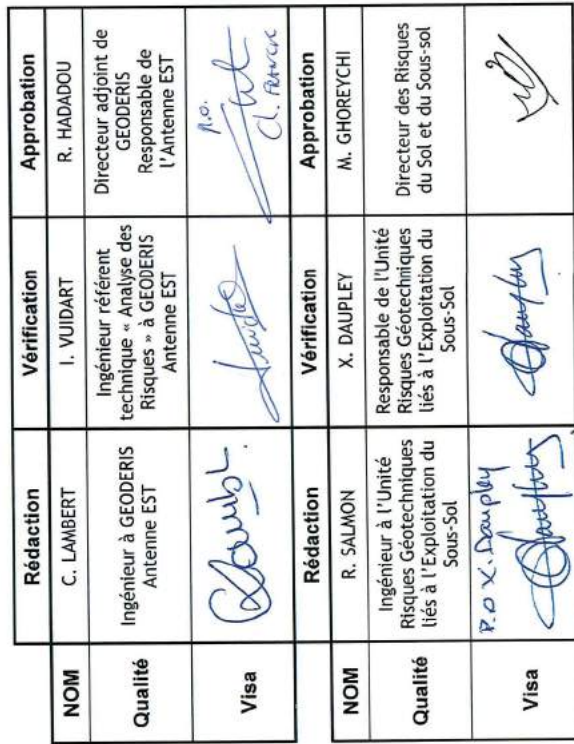 Rédaction Vérification Approbation
NOM C. LAMBERT I. VUIDART R. HADADOU
Qualité
Ingénieur à GEODERIS
Antenne EST
Ingénieur référent
technique « Analyse des
Risques » à GEODERIS
Antenne EST
Directeur adjoint de
GEODERIS
Responsable de
l'Antenne EST
Visa
P.O.
Rédaction Vérification Approbation
NOM R. SALMON X. DAUPLEY M. GHOREYCHI
Qualité
Ingénieur à l'Unité
Risques Géotechniques
liés à l'Exploitation du
Sous-Sol
Responsable de l'Unité
Risques Géotechniques
liés à l'Exploitation du
Sous-Sol
Directeur des Risques
du Sol et du Sous-sol
Visa
P.O X. Daupley